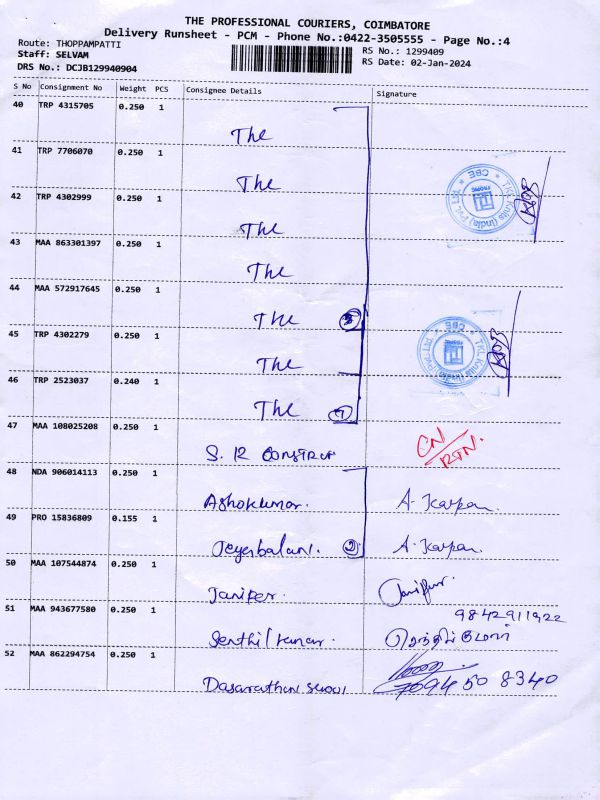 THE PROFESSIONAL COURIERS, COIMBATORE
Delivery Runsheet - PCM - Phone No.:0422-3505555 - Page No.:4
Route: THOPPAMPATTI
Staff: SELVAM
DRS No.: DCJB129940904
RS No.: 1299409
RS Date: 02-Jan-2024
S No Consignment No Weight PCS Consignee Details Signature
40 TRP 4315705 0.250 1
The
41 TRP 7706070 0.250 1
The
42 TRP 4302999 0.250 1
The
43 MAA 863301397 0.250 1
The
44 MAA 572917645 0.250 1
The
45 TRP 4302279 0.250 1
The
46 TRP 2523037 0.240 1
The
47 MAA 108025208 0.250 1
CN/RTN.
48 NDA 906014113 0.250 1
Ashokkumar. A. Karpan
49 PRO 15836809 0.155 1
Jeyabalan. 2 A. Karpan
50 MAA 107544874 1
0.250
Janifer.
51 MAA 943677580 0.250 1
9842911922
Senthil kumar.
52 MAA 862294754 0.250 1
7094508340